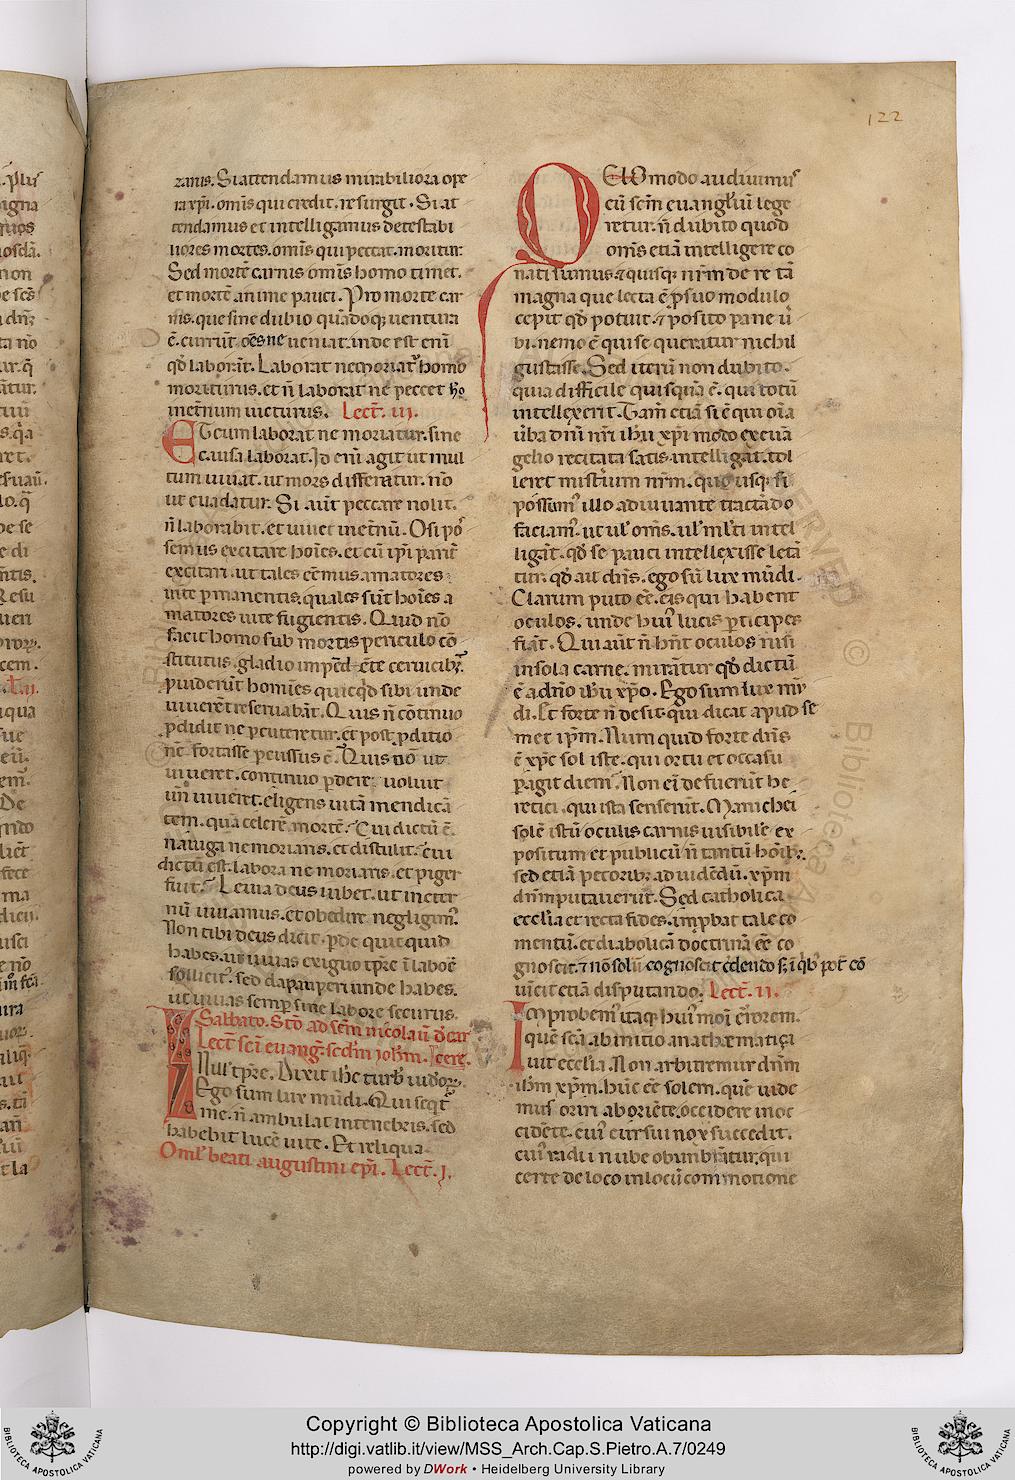 122
zarus. Si attendamus mirabiliora ope
ra xp̄i. om̄is qui credit. resurgit. Si at
tendamus et intelligamus detestabi
liores mortes. om̄is qui peccat. moritur.
Sed mortē carnis om̄is homo timet.
et mortē anime pauci. Pro morte car
nis. que sine dubio quādoq; uentura
ē. currūt om̄s ne ueniat. inde est enī
qđ laborāt. Laborat ne moriat᷑ homo
moriturus. et n̄ laborat ne peccet ho
in et̄num uicturus. Lect̄. iii.
ET cum laborat ne moriatur. sine
causa laborat. Id enī agit ut mul
tum uiuat. ut mors differatur. nō
ut euadatur. Si aūt peccare nolit.
n̄ laborabit. et uiuet in et̄nū. O si pos
semus excitare hoīes. et cū ip̄i parit̄
excitari. ut tales eēmus amatores
uite permanentis. quales sūt hoīes a
matores uite fugientis. Quid nō
facit homo sub mortis periculo cō
stitutus. gladio impēdēte ceruicib;
ꝓdiderūt homīes quicqđ sibi unde
uiuerēt reseruabāt. Quis n̄ cōtinuo
ꝓdidit ne percuteretur. et post ꝑditio
nē fortasse percussus ē. Quis nō ut
uiueret. continuo perdere uoluit
un̄ uiueret. eligens uitā mendicā
tem. quā celerē mortē. Cui dictū ē.
nauiga ne moriaris. et distulit. cui
dictū est. labora ne moriaris. et piger
fuit. Leuia deus iubet. ut in eter
nū uiuamus. et obedire negligim᷒.
Non tibi deus dicit. ꝑde quicquid
habes. ut uiuas exiguo tp̄re ī labore
sollicit᷒. sed da pauperi unde habes.
ut uiuas semper sine labore securus.
Sabbato. Stō ad sēm nicolaū ī car
Lect̄ sc̄i euang. sc̄dm ioh̄m. cere.
IN illo tp̄re. Dixit ih̄c turb᷒ iudeor᷒.
Ego sum lux mūdi. Qui seqt᷑
me. n̄ ambulat in tenebris. sed
habebit lucē uite. Et reliqua.
Oml᷒ beati augustini ep̄i. Lect̄. i.
QUOD modo audiuimus
cū sc̄m euangl̄iū lege
retur. n̄ dubito quod
om̄s etiā intelligere co
nati sumus. et quisq; nr̄m de re tā
magna que lecta ē p suo modulo
cepit qđ potuit. et posito pane u̇
bi. nemo ē qui se queratur nichil
gustasse. Sed iterū non dubito.
quia difficile quisquā ē. qui totū
intellexerit. Tam̄ etiā si ē qui om̄ia
uerba dn̄i nr̄i ih̄u xp̄i modo ex euā
gelio recitata satis intelligat. tol
leret misteriū nr̄m. quo usq; si
possum᷒ illo adiuuante tractādo
faciam᷒. ut uel om̄s. uel mul̄ti intel
ligāt. qđ se pauci intellexisse letā
tur. qđ ait dn̄s. ego sū lux mūdi.
Clarum puto eē. eis qui habent
oculos. unde hui᷒ lucis participes
fiāt. Qui aūt n̄ hn̄t oculos nisi
in sola carne. mirātur qđ dictū
ē a dn̄o ih̄u xp̄o. Ego sum lux mū
di. Et forte n̄ desit. qui dicat apud se
met ip̄m. Num quid forte dn̄s
ē xp̄c sol iste. qui ortu et occasu
peragit diem. Non eī defuerūt he
retici. qui ista senserūt. Manichei
solē istū oculis carnis uisibilē ex
positum et publicū n̄ tantū hoīb;
sed etiā pecorib; ad uidēdū. xp̄m
dn̄m putauerūt. Sed catholica
eccl̄ia et recta fides. improbat tale co
mentū. et diabolicā doctrinā eē co
gnoscit. et nō solū cognoscit credendo s; ī qb᷒ pot̄ cō
uīcit etiā disputando. Lect̄. ii.
Improbem᷒ itaq; hui᷒ moī errorem.
quē sc̄a ab initio anathematiza
uit eccl̄ia. Non arbitremur dn̄m
ih̄m xp̄m. hūc eē solem. quē uide
mus oriri ab oriēte. occidere in oc
cidēte. cui᷒ cursui nox succedit.
cui᷒ radii nube obumbrātur. qui
certe de loco in locū commotione
Copyright © Biblioteca Apostolica Vaticana
http://digi.vatlib.it/view/MSS_Arch.Cap.S.Pietro.A.7/0249
powered by DWork • Heidelberg University Library
BIBLIOTECA APOSTOLICA VATICANA
BIBLIOTECA APOSTOLICA VATICANA